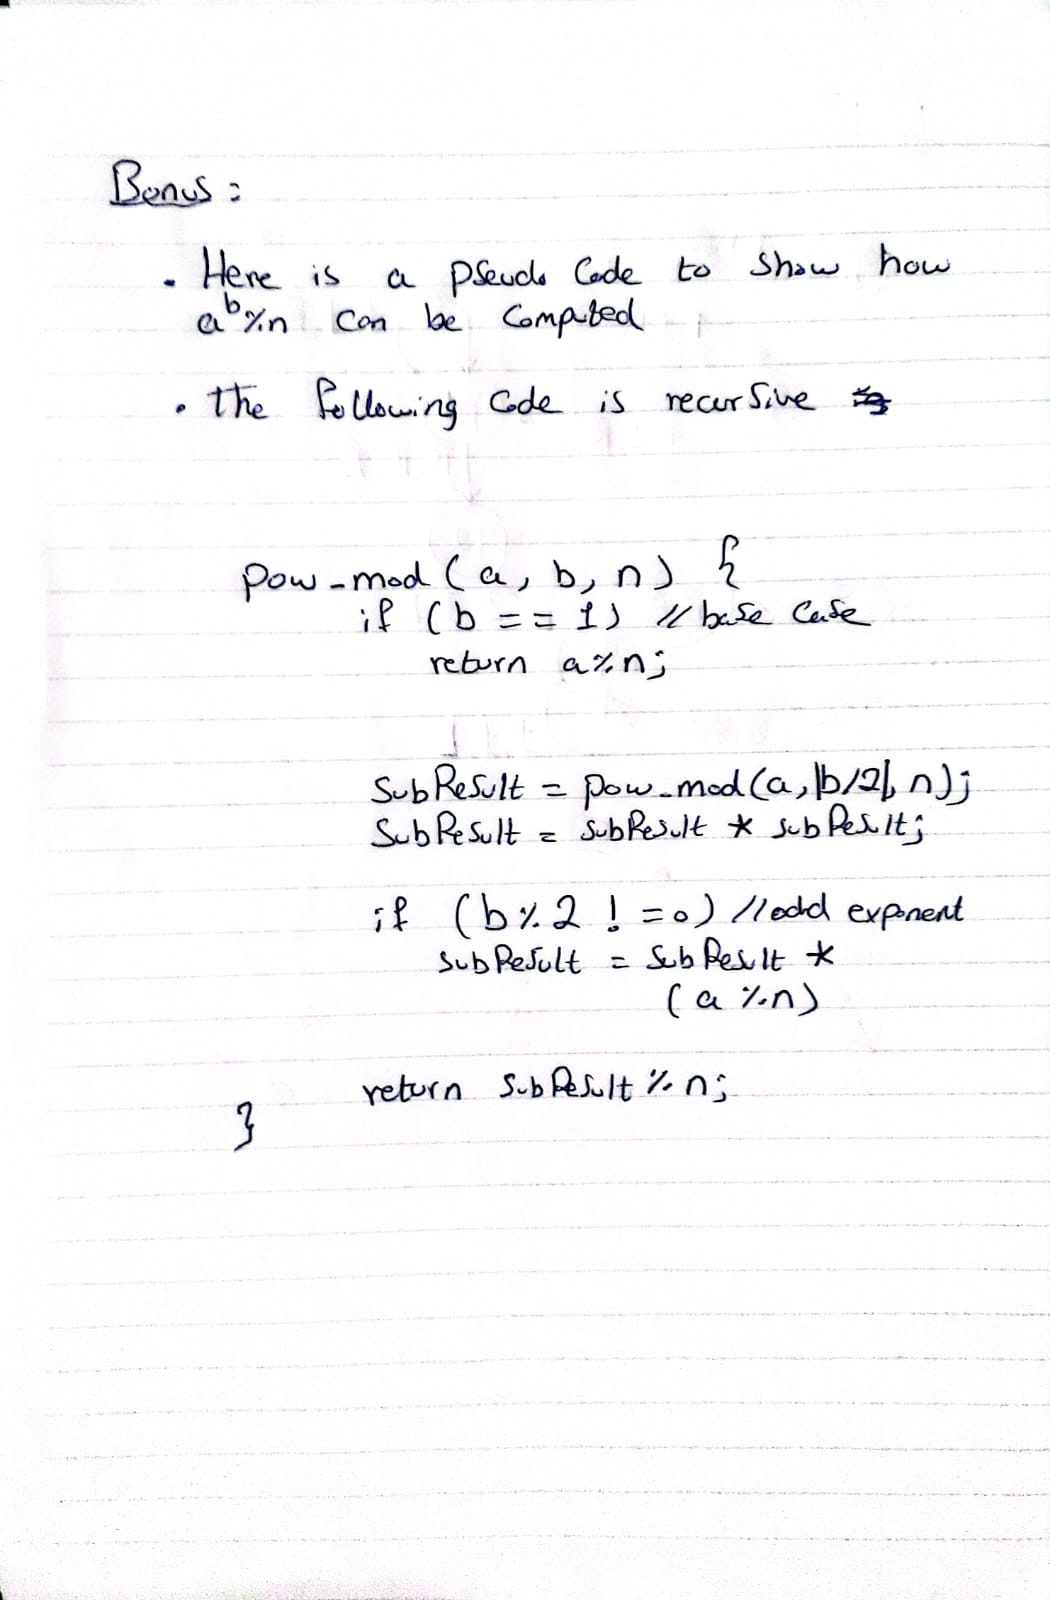 Bonus:
• Here is a pseudo Code to show how
a^b%n can be computed
• the following Code is recursive
pow-mod (a, b, n) {
if (b == 1) // base Case
return a%n;
SubResult = pow-mod(a, ⌊b/2⌋, n);
SubResult = subResult * subResult;
if (b % 2 != 0) // odd exponent
subResult = SubResult *
(a %n)
return subResult % n;
}